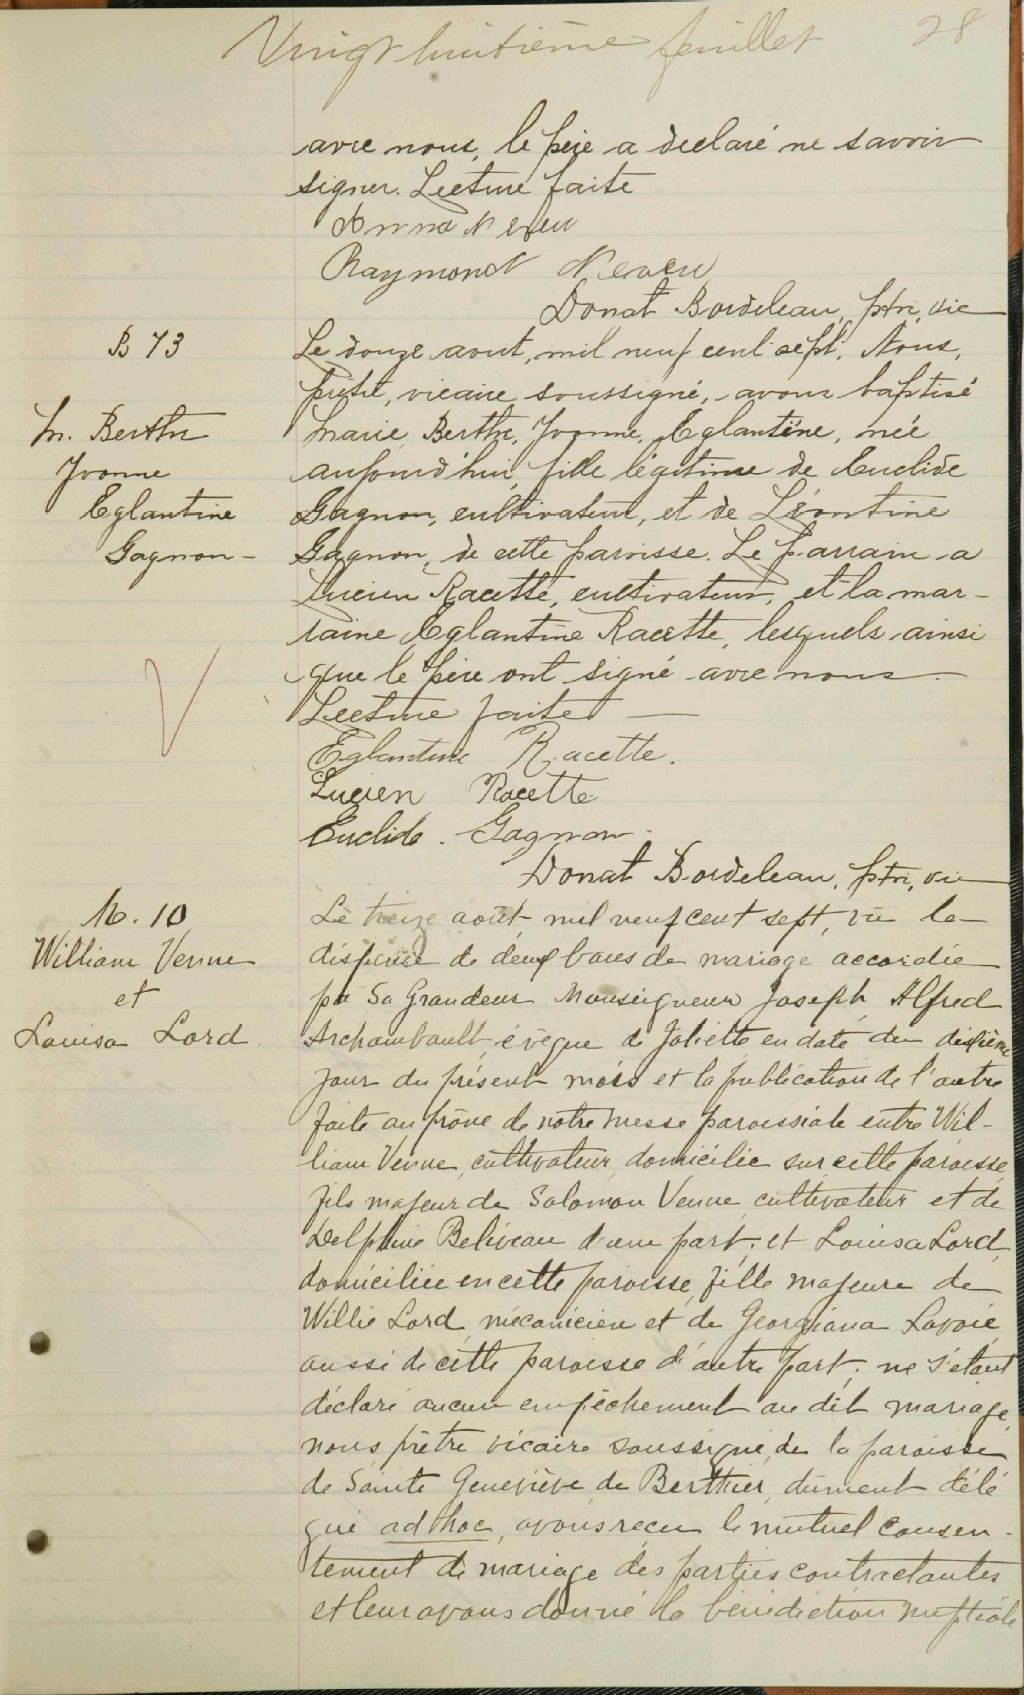 Vingt huitième feuillet 28
avec nous, le père a declaré ne savoir
signer. Lecture faite
Anna Neveu
Raymond Neveu
Donat Bordeleau, ptre, vic
B 73
M. Berthe
Yvonne
Eglantine
Gagnon -
Le douze aout, mil neuf cent sept, Nous,
prêtre, vicaire soussigné, avons baptisé
Marie, Berthe, Yvonne, Eglantine, née
aujourd'hui, fille légitime de Euclide
Gagnon, cultivateur, et de Léontine
Gagnon, de cette paroisse. Le parrain a
Lucien Racette, cultivateur, et la mar-
raine Eglantine Racette, lesquels ainsi
que le père ont signé avec nous
Lecture faite —
Eglantine Racette.
Lucien Racette
Euclide. Gagnon.
Donat Bordeleau, ptre, vic
M. 10
William Venne
et
Louisa Lord.
Le treize août, mil neuf cent sept, vu la
dispense de deux bans de mariage accordée
par Sa Grandeur Monseigneur Joseph Alfred
Archambault, évêque de Joliette en date du dixième
jour du présent mois et la publication de l'autre
faite au prône de notre messe paroissiale entre Wil-
liam Venne, cultivateur, domicilié sur cette paroisse
fils majeur de Solomon Venne, cultivateur et de
Delphine Beliveau d'une part; et Louisa Lord,
domiciliée en cette paroisse, fille majeure de
Willie Lord, mécanicien et de Georgiana Lavoie,
aussi de cette paroisse d'autre part; ne s'étant
déclaré aucun empêchement au dit mariage,
nous prêtre vicaire soussigné, de la paroisse
de Sainte Geneviève de Berthier, dûment délé
gué ad hoc, avons reçu le mutuel consen-
tement de mariage des parties contractantes
et leur avons donné la bénédiction nuptiale